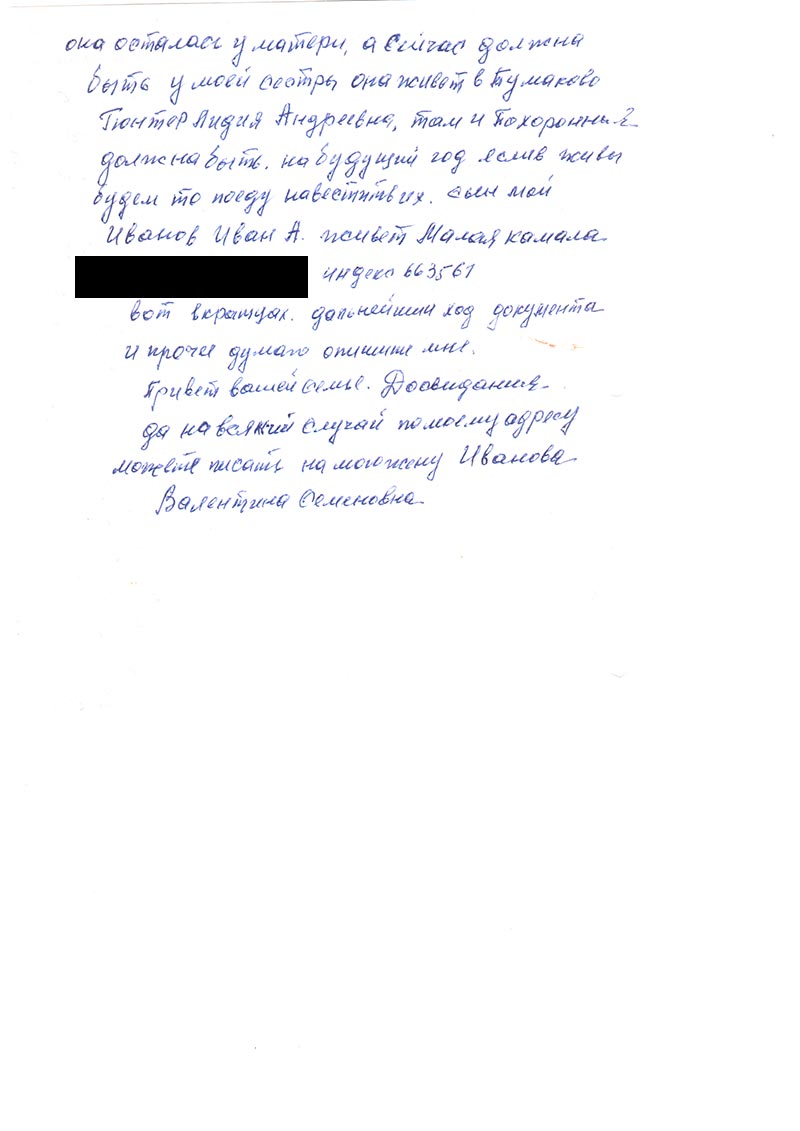 она осталась у матери, а сейчас должна
быть у моей сестры она живет в Тумаково
Гюнтер Лидия Андреевна, там и Похоронный
должна быть. на будущий год яслив живы
будем то поеду навестить их. сын мой
Иванов Иван А. живет Малая камала
индекс 663561
вот вкратцах. дальнейший ход документа
и прочее думаю опишите мне.
Привет вашей семье. Досвидания
да на всякий случай по моему адресу
можете писать на мою жену Иванова
Валентина Семеновна